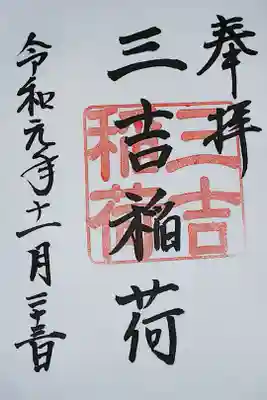 奉拝
三吉稲荷
三吉
稲荷
令和元年十一月二十三日